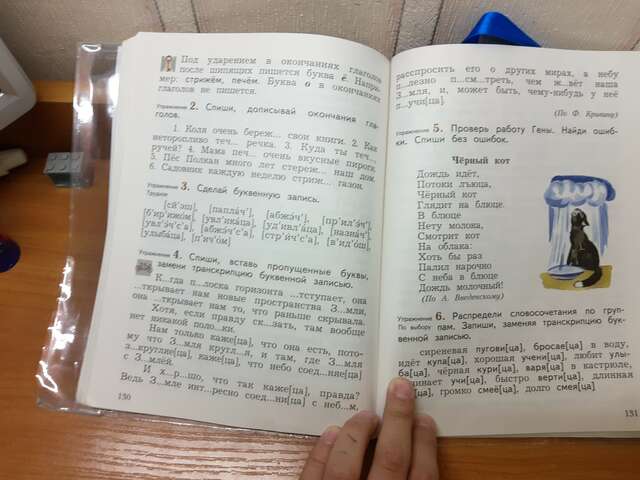 Под ударением в окончаниях глаголов
после шипящих пишется буква ё. Напри-
мер: стрижём, печём. Буква о в окончаниях
глаголов не пишется.
Упражнение 2. Спиши, дописывай окончания гла-
голов.
1. Коля очень береж... свои книги. 2. Как
неторопливо теч... речка. 3. Куда ты теч...
ручей? 4. Мама печ... очень вкусные пироги.
5. Пёс Полкан много лет стереж... наш дом.
6. Садовник каждую неделю стриж... газон.
Упражнение 3. Сделай буквенную запись.
Трудное
Упражнение 4. Спиши, вставь пропущенные буквы,
замени транскрипцию буквенной записью.
К...гда п...лоска горизонта ...тступает, она
...ткрывает нам новые пространства З...мли,
она ...ткрывает нам то, что раньше скрывала.
Хотя, если правду ск...зать, там вообще
нет никакой поло...ки.
Нам только каже[ца], что она есть, пото-
му что З...мля кругл...я, и там, где З...мля
з...кругляе[ца], каже[ца], что небо соед...няе[ца]
с З...млёй.
И х...р...шо, что так каже[ца], правда?
Ведь З...мле инт...ресно соед...ни[ца] с неб...м,
130
расспросить его о других мирах, а небу
п...лезно п...см...треть, чем ж...вёт наша
З...мля, и, может быть, чему-нибудь у неё
п...учи[ца].
(По Ф. Кривину)
Упражнение 5. Проверь работу Гены. Найди ошиб-
ки. Спиши без ошибок.
Чёрный кот
Дождь идёт,
Потоки льюца,
Чёрный кот
Глядит на блюце.
В блюце
Нету молока,
Смотрит кот
На облака:
Хоть бы раз
Палил нарочно
С неба в блюце
Дождь молочный!
(По А. Введенскому)
Упражнение 6. Распредели словосочетания по груп-
По выбору пам. Запиши, заменяя транскрипцию бук-
венной записью.
сиреневая пугови[ца], бросае[ца] в воду,
идёт купа[ца], хорошая учени[ца], любит улы-
ба[ца], чёрная кури[ца], варя[ца] в кастрюле,
учи[ца], быстро верти[ца], длинная
громко смеё[ца], долго смея[ца]
131